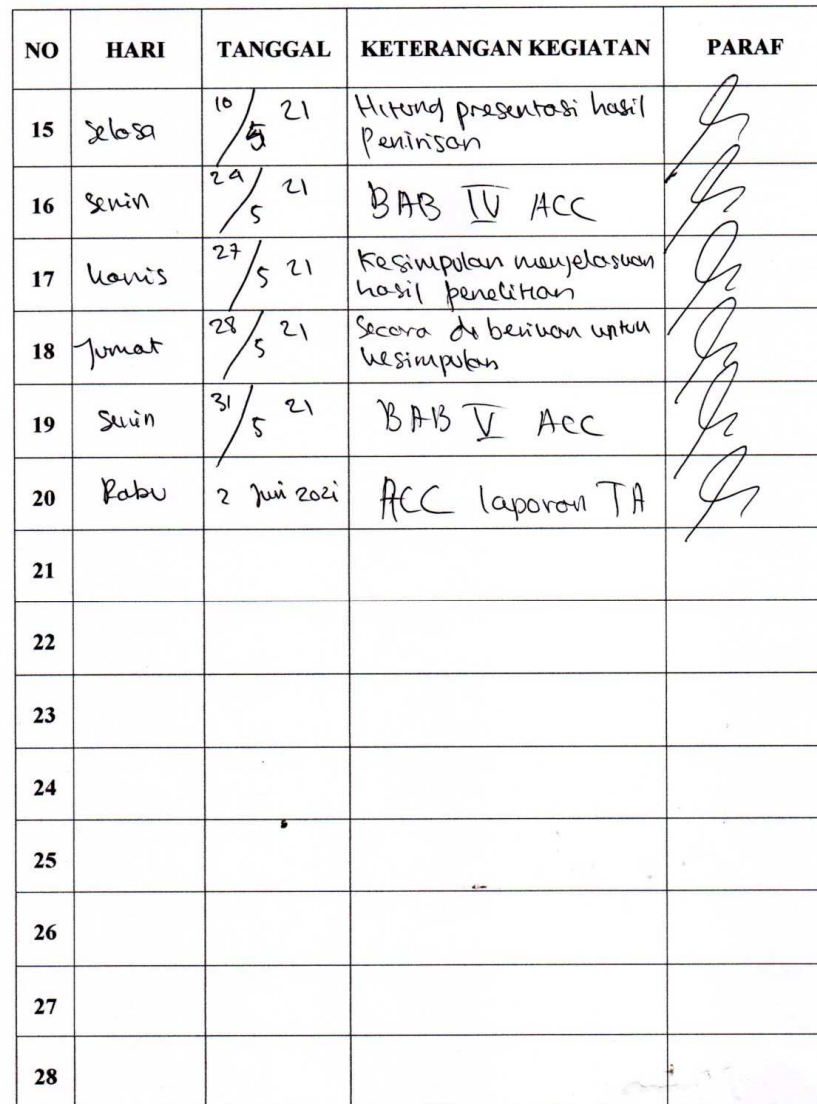 NO HARI TANGGAL KETERANGAN KEGIATAN PARAF
15 Selasa 10/5 21 Hitung presentasi hasil
Penirisan
16 Senin 24/5 21 BAB IV ACC
17 Kamis 27/5 21 Kesimpulan menjelaskan
hasil penelitian
18 Jumat 28/5 21 Secara di berikan untuk
kesimpulan
19 Senin 31/5 21 BAB V ACC
20 Rabu 2 Juni 2021 ACC laporan TA
21
22
23
24
25
26
27
28